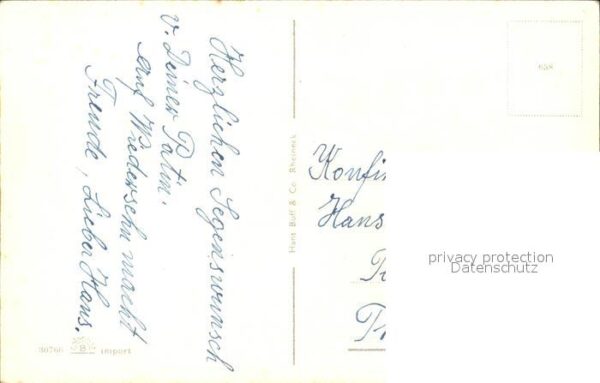 Herzlichen Segenswunsch
v. Deiner Patin.
Auf Wiedersehn macht
Freude, Lieber Hans.
30766 B import
Hans Buff & Co. Rheineck
658
Hans
privacy protection
Datenschutz